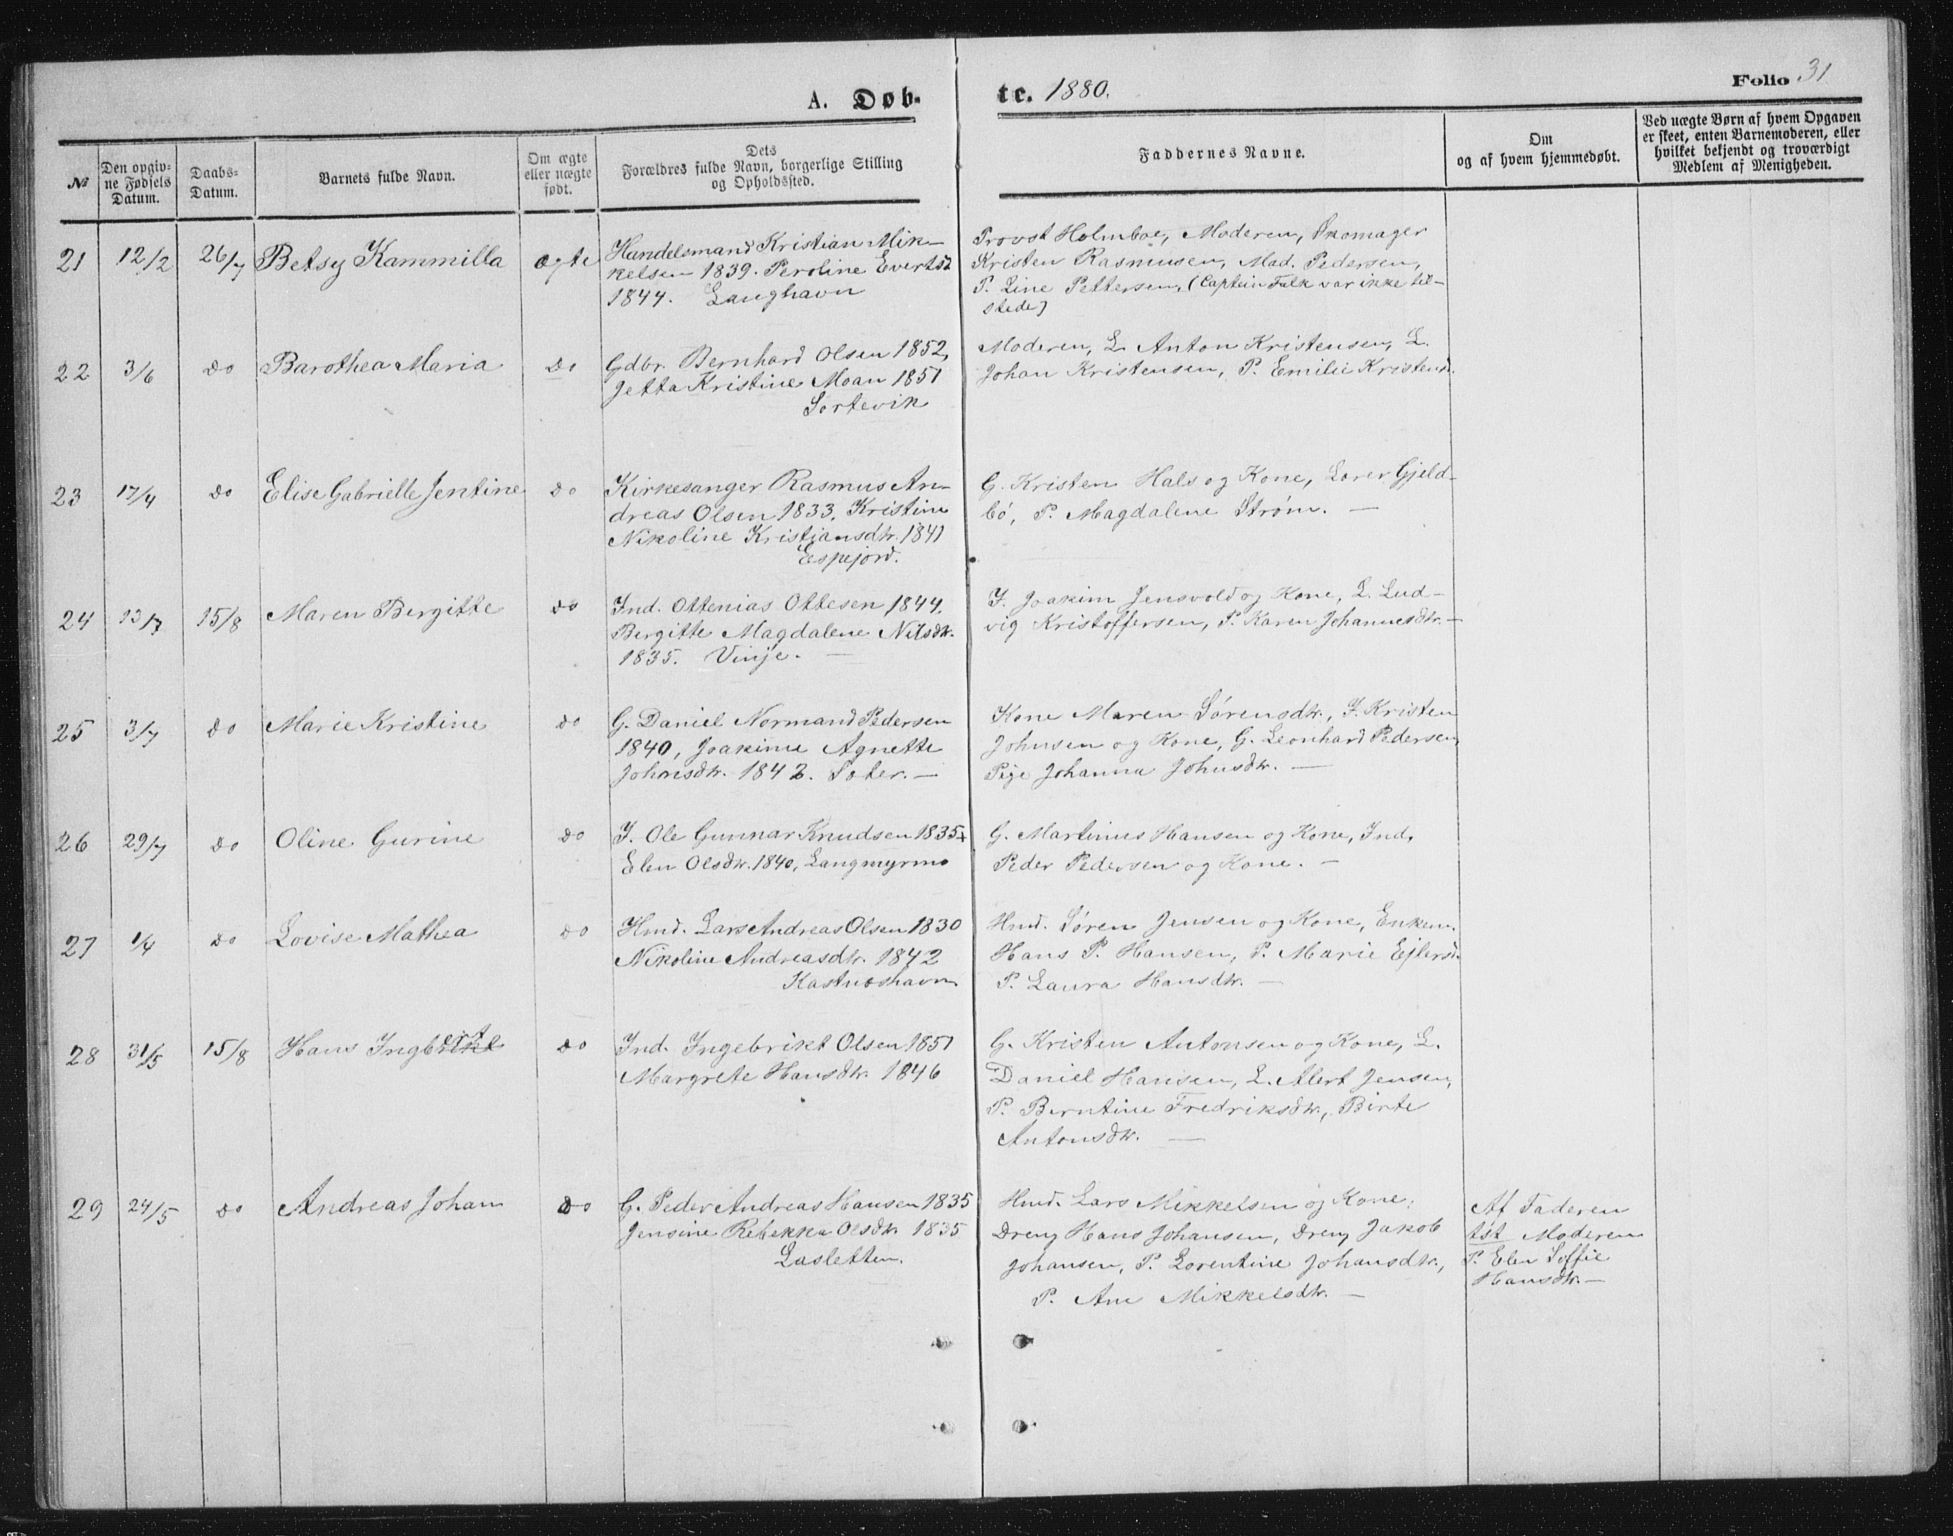 A. Døb-
te. 1880.
Folio 31
№
Den opgiv-
ne Fødsels
Datum.
Daabs-
Datum.
Barnets fulde Navn.
Om ægte
eller uægte
født.
Dets
Forældres fulde Navn, borgerlige Stilling
og Opholdssted.
Faddernes Navne.
Om
og af hvem hjemmedøbt.
Ved uægte Børn af hvem Opgaven
er skeet, enten Barnemoderen, eller
hvilket bekjendt og troværdigt
Medlem af Menigheden.
21 12/2 26/7 Betsy Kammilla ægte
Handelsmand Kristian Mik-
kelsen 1839. Peroline Evertsd
1844. Langhavn
Provst Holmboe, Moderen, Skomager
Kristen Rasmusen, Mad. Pedersen,
P. Line Pettersen, (Captein Falk var ikke til-
stede)
22 3/6 do Barothea Maria do
Gdbr. Bernhard Olsen 1852,
Jetta Kristine Moan 1851
Sortevik
Moderen, L. Anton Kristensen, L.
Johan Kristensen, P. Emilie Kristensd.
23 17/4 do Elise Gabrielle Jentine do
Kirkesanger Rasmus An-
dreas Olsen 1833. Kristine
Nikoline Kristjansdtr. 1841
Espejord.
G. Kristen Hals og Kone, Lærer Gjeld-
bö, P. Magdalene Strøm. —
24 13/7 15/8 Maren Bergitte do
Ind. Ottenias Ottesen 1844.
Bergitte Magdalene Nilsdtr.
1835. Vinje. —
I. Joakim Jensvold og Kone, L. Lud-
vig Kristoffersen, P. Karen Johannesdtr. —
25 3/7 do Marie Kristine do
G. Daniel Normand Pedersen
1840, Joakime Agnette
Johnsdtr. 1842. Soter. —
Kone Maren Sörensdtr., I. Kristen
Johnsen og Kone, G. Leonhard Pedersen,
Pige Johanna Johnsdtr. —
26 29/7 do Oline Gurine do
I. Ole Gunnar Knudsen 1835 +
Elen Olsdtr. 1840, Langmyrmo
G. Martinus Hansen og Kone, Ind.
Peder Pedersen og Kone. —
27 1/4 do Lovise Mathea do
Hmd. Lars Andreas Olsen 1830
Nikoline Andreasdtr. 1842
Kastnæshavn
Hmd. Søren Jensen og Kone, Enkem.
Hans P. Hansen, P. Marie Ejlersd.
P. Laura Hansdtr. —
28 31/5 15/8 Hans do
Ind. Ingebrikt Olsen 1851
Margrete Hansdtr. 1846
G. Kristen Antonsen og Kone, L.
Daniel Hansen, L. Alert Jensen,
P. Berntine Fredriksdtr., Birte
Antonsdtr. —
29 24/5 do Andreas Johan do
G. Peder Andreas Hansen 1835
Jensine Rebekka Olsdtr 1835
Lasletten.
Hmd. Lars Mikkelsen og Kone,
Dreng Hans Johansen, Dreng Jakob
Johansen, P. Lorentine Johansdtr,
P. Ane Mikkelsdtr. —
Af Faderen
tst Moderen
P. Elen Soffie
Hansdtr. —